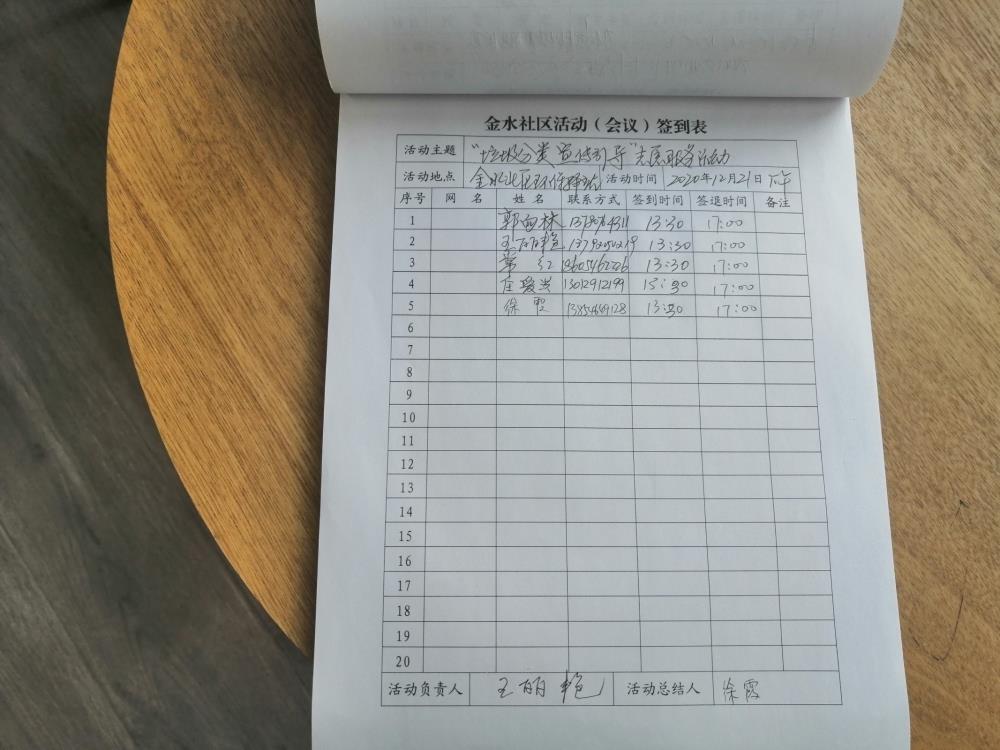 金水社区活动(会议)签到表
活动主题 "垃圾分类宣传引导"志愿服务活动
活动地点 金水社区 活动时间 2020年12月21日 下午
序号 网 名 姓 名 联系方式 签到时间 签退时间 备注
1 13:30 17:00
2 王丽艳 13:30 17:00
3 13:30 17:00
4 庄爱兰 13012912199 13:30 17:00
5 徐霞 13:30 17:00
6
7
8
9
10
11
12
13
14
15
16
17
18
19
20
活动负责人 王丽艳 活动总结人 徐霞